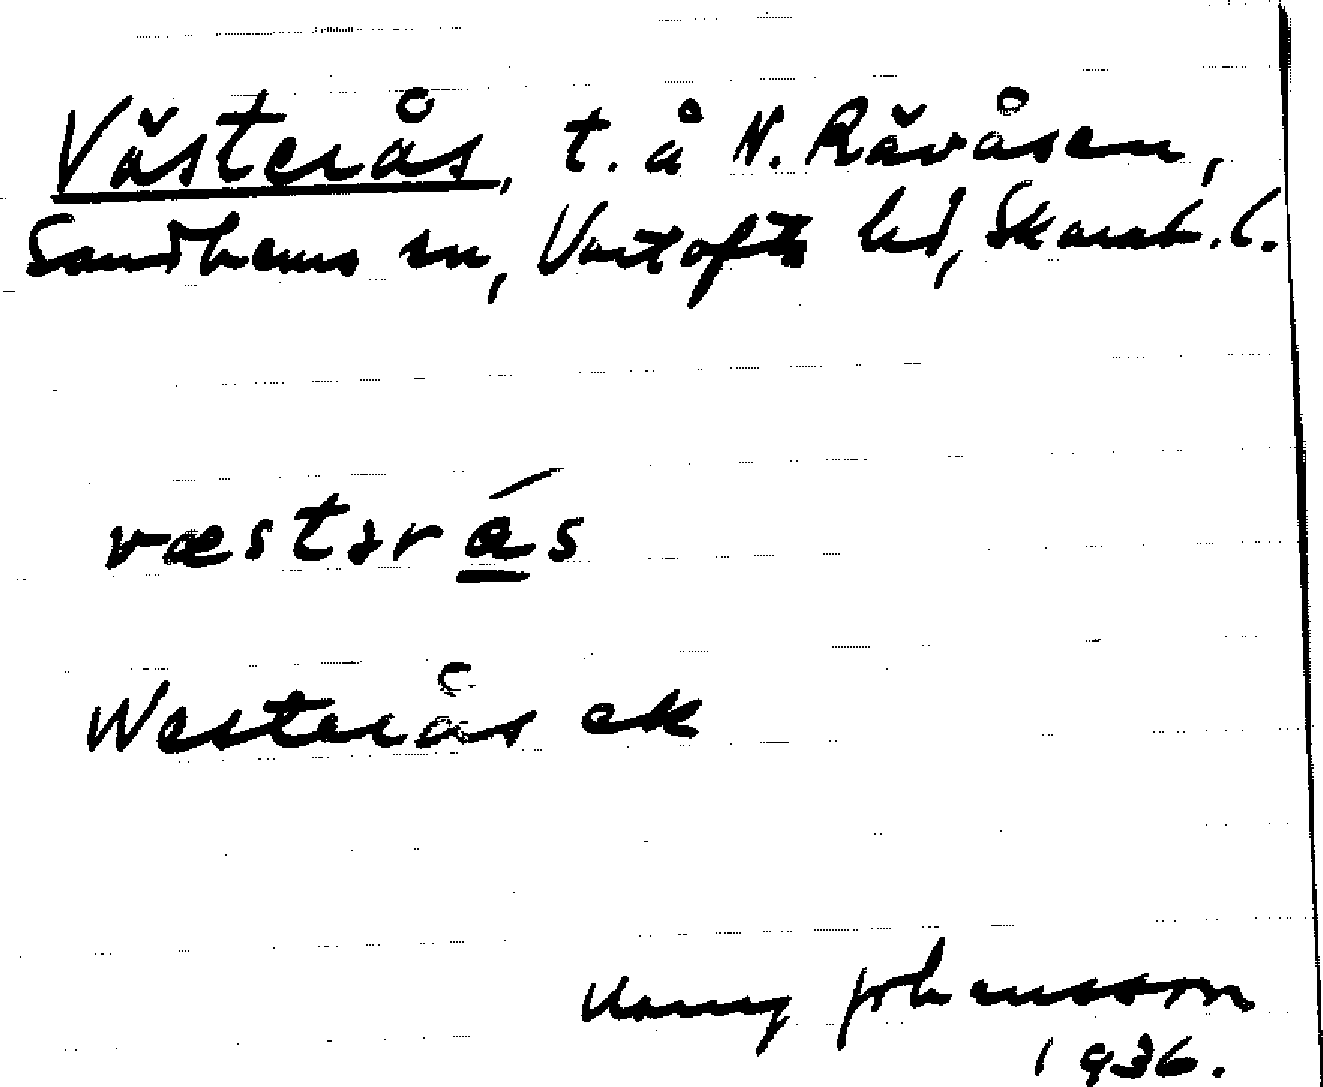 Västerås, t. å N. Rävåsen,
Sandhems sn, Vartofta hd, Skarab. l.
væstərás
Westerås ek
Johansson
1936.